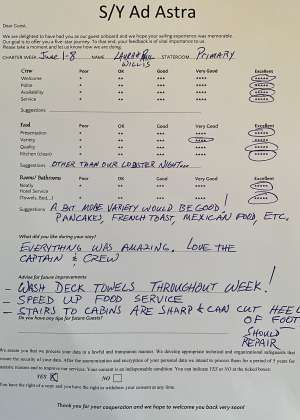 S/Y Ad Astra
Dear Guest,
We are delighted to have had you as our guest onboard and we hope your sailing experience was memorable.
Our goal is to offer you a five star journey. To that end, your feedback is of vital importance to us.
Please take a moment and let us know how are we doing.
CHARTER WEEK June 1-8 NAME LAURA & PAUL WILLIS STATEROOM PRIMARY
Crew Poor OK Good Very Good Excellent
Welcome * ** *** **** *****
Polite * ** *** **** *****
Availability * ** *** **** *****
Service * ** *** **** *****
Suggestions
Food Poor OK Good Very Good Excellent
Presentation * ** *** **** *****
Variety * ** *** **** *****
Quality * ** *** **** *****
Kitchen (clean) * ** *** **** *****
Suggestions OTHER THAN OUR LOBSTER NIGHT...
Rooms/ Bathrooms Poor OK Good Very Good Excellent
Neatly * ** *** **** *****
Hotel Service
(Towels, Bed...) * ** *** **** *****
Suggestions A BIT MORE VARIETY WOULD BE GOOD!
PANCAKES, FRENCH TOAST, MEXICAN FOOD, ETC.
What did you like during your stay?
EVERYTHING WAS AMAZING. LOVE THE
CAPTAIN & CREW
Advice for future improvements
- WASH DECK TOWELS THROUGHOUT WEEK!
- SPEED UP FOOD SERVICE
- STAIRS TO CABINS ARE SHARP & CAN CUT HEEL
OF FOOT
Do you have any tips for future Guests?
SHOULD
REPAIR
We assure you that we process your data in a lawful and transparent manner. We develop appropriate technical and organizational safeguards that
ensure the security of your data. After the anonymization and encryption of your personal data we intend to process them for a period of 5 years for
statistic reasons and to improve our services. Your consent is an indispensable condition. You can indicate YES or NO at the ticked boxes:
YES NO
You have the right of access and you have the right to withdraw your consent at any time.
Thank you for your cooperation and we hope to welcome you back very soon!